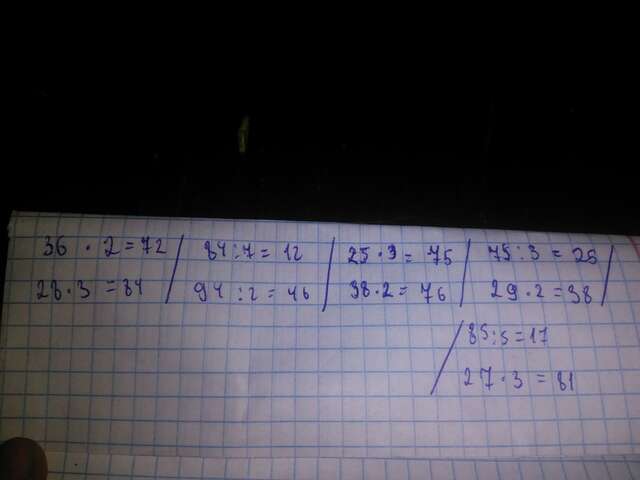 36 · 2 = 72 / 84 : 7 = 12 / 25 · 3 = 75 / 75 : 3 = 25 /
28 · 3 = 84 / 94 : 2 = 46 / 38 · 2 = 76 / 29 · 2 = 38 /
/ 85 : 5 = 17
27 · 3 = 81